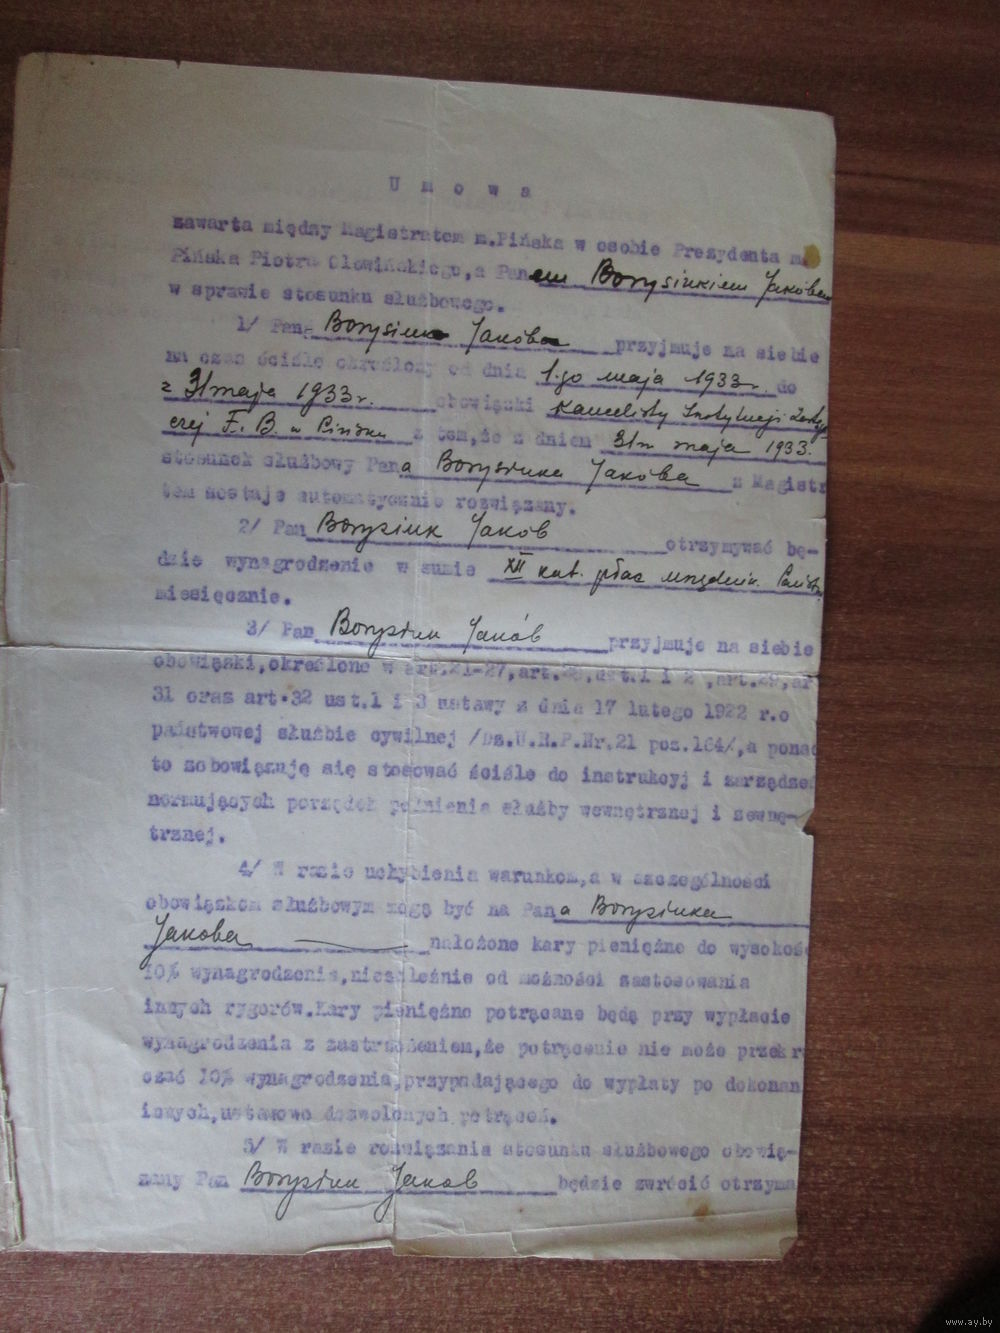 U m o w a
zawarta między Magistratem m.Pińska w osobie Prezydenta m.
Pińska Piotra Olewińskiego,a Panem Borysiukiem Jakóbem
w sprawie stosunku służbowego.
1/ Pan Borysiuk Jakób przyjmuje na siebie
na czas ściśle określony od dnia 1.go maja 1933r. do
31 maja 1933r. obowiązki Kancelisty Instytucji
F. B. w Pińsku z tem,że z dniem 31 maja 1933.
stosunek służbowy Pana Borysiuka Jakóba z Magistr
tem zostaje automatycznie rozwiązany.
2/ Pan Borysiuk Jakób otrzymywać bę-
dzie wynagrodzenie w sumie XII kat. płac urzędn. Państw.
miesięcznie.
3/ Pan Borysiuk Jakób przyjmuje na siebie
obowiązki,określone w art.21-27,art.28,ust.1 i 2 ,art.29,ar
31 oraz art.32 ust.1 i 3 ustawy z dnia 17 lutego 1922 r.o
państwowej służbie cywilnej /Dz.U.R.P.Nr.21 poz.164/,a ponad
to zobowiązuję się stosować ściśle do instrukcyj i zarządzeń
normujących porządek pełnienia służby wewnętrznej i zewnę-
trznej.
4/ W razie uchybienia warunkom,a w szczególności
obowiązkom służbowym mogą być na Pana Borysiuka
Jakóba nałożone kary pieniężne do wysokoś
10% wynagrodzenia,niezależnie od możności zastosowania
innych rygorów.Kary pieniężne potrącane będą przy wypłacie
wynagrodzenia z zastrzeżeniem,że potrącenie nie może przekr
czać 10% wynagrodzenia,przypadającego do wypłaty po dokonan
innych,ustawowo dozwolonych potrąceń.
5/ W razie rozwiązania stosunku służbowego obowią-
zany Pan Borysiuk Jakób będzie zwrócić otrzyma
www.ay.by